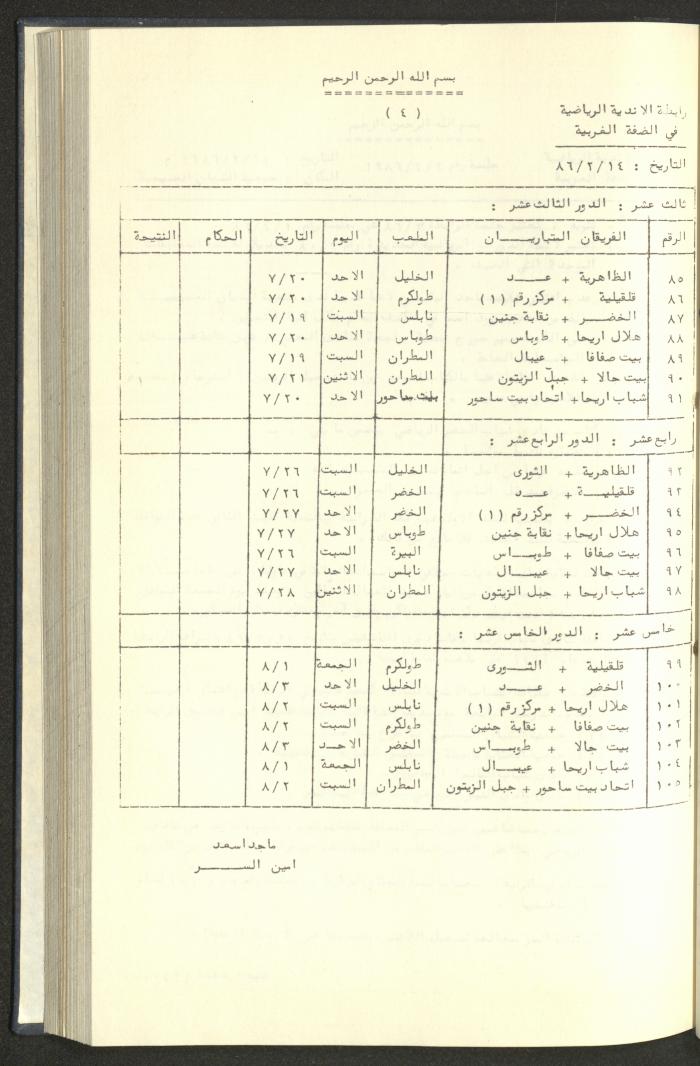 بسم الله الرحمن الرحيم
( ٤ )
رابطة الاندية الرياضية
في الضفة الغربية
التاريخ : ٨٦/٢/١٤
ثالث عشر : الدور الثالث عشر :
الرقم الفريقان المتباريـــــان الملعب اليوم التاريخ الحكام النتيحة
٨٥ الظاهرية + عــــد الخليل الاحد ٧/٢٠
٨٦ قلقيلية + مركز رقم (١) طولكرم الاحد ٧/٢٠
٨٧ الخضـــر + نقابة جنين نابلس السبت ٧/١٩
٨٨ هلال اريحا + طوباس طوباس الاحد ٧/٢٠
٨٩ بيت صفافا + عيبال المطران السبت ٧/١٩
٩٠ بيت حالا + جبل الزيتون المطران الاثنين ٧/٢١
٩١ شباب اريحا + اتحاد بيت ساحور بيت ساحور الاحد ٧/٢٠
رابع عشر : الدور الرابع عشر :
٩٢ الظاهرية + الثورى الخليل السبت ٧/٢٦
٩٣ قلقيليــــة + عــــد الخضر السبت ٧/٢٦
٩٤ الخضـــر + مركز رقم (١) الخضر الاحد ٧/٢٧
٩٥ هلال اريحا + نقابة جنين طوباس الاحد ٧/٢٧
٩٦ بيت صفافا + طوبـــاس البيرة السبت ٧/٢٦
٩٧ بيت حالا + عيبــــال نابلس الاحد ٧/٢٧
٩٨ شباب اريحا + جبل الزيتون المطران الاثنين ٧/٢٨
خامس عشر : الدور الخامس عشر :
٩٩ قلقيلية + الثــورى طولكرم الجمعة ٨/١
١٠٠ الخضر + عــــد الخليل الاحد ٨/٣
١٠١ هلال اريحا + مركز رقم (١) نابلس السبت ٨/٢
١٠٢ بيت صفافا + نقابة جنين طولكرم السبت ٨/٢
١٠٣ بيت جالا + طوبـــاس الخضر الاحــد ٨/٣
١٠٤ شباب اريحا + عيبــــال نابلس الجمعة ٨/١
١٠٥ اتحاد بيت ساحور + جبل الزيتون المطران السبت ٨/٢
ماجد اسعد
امين الســـــر